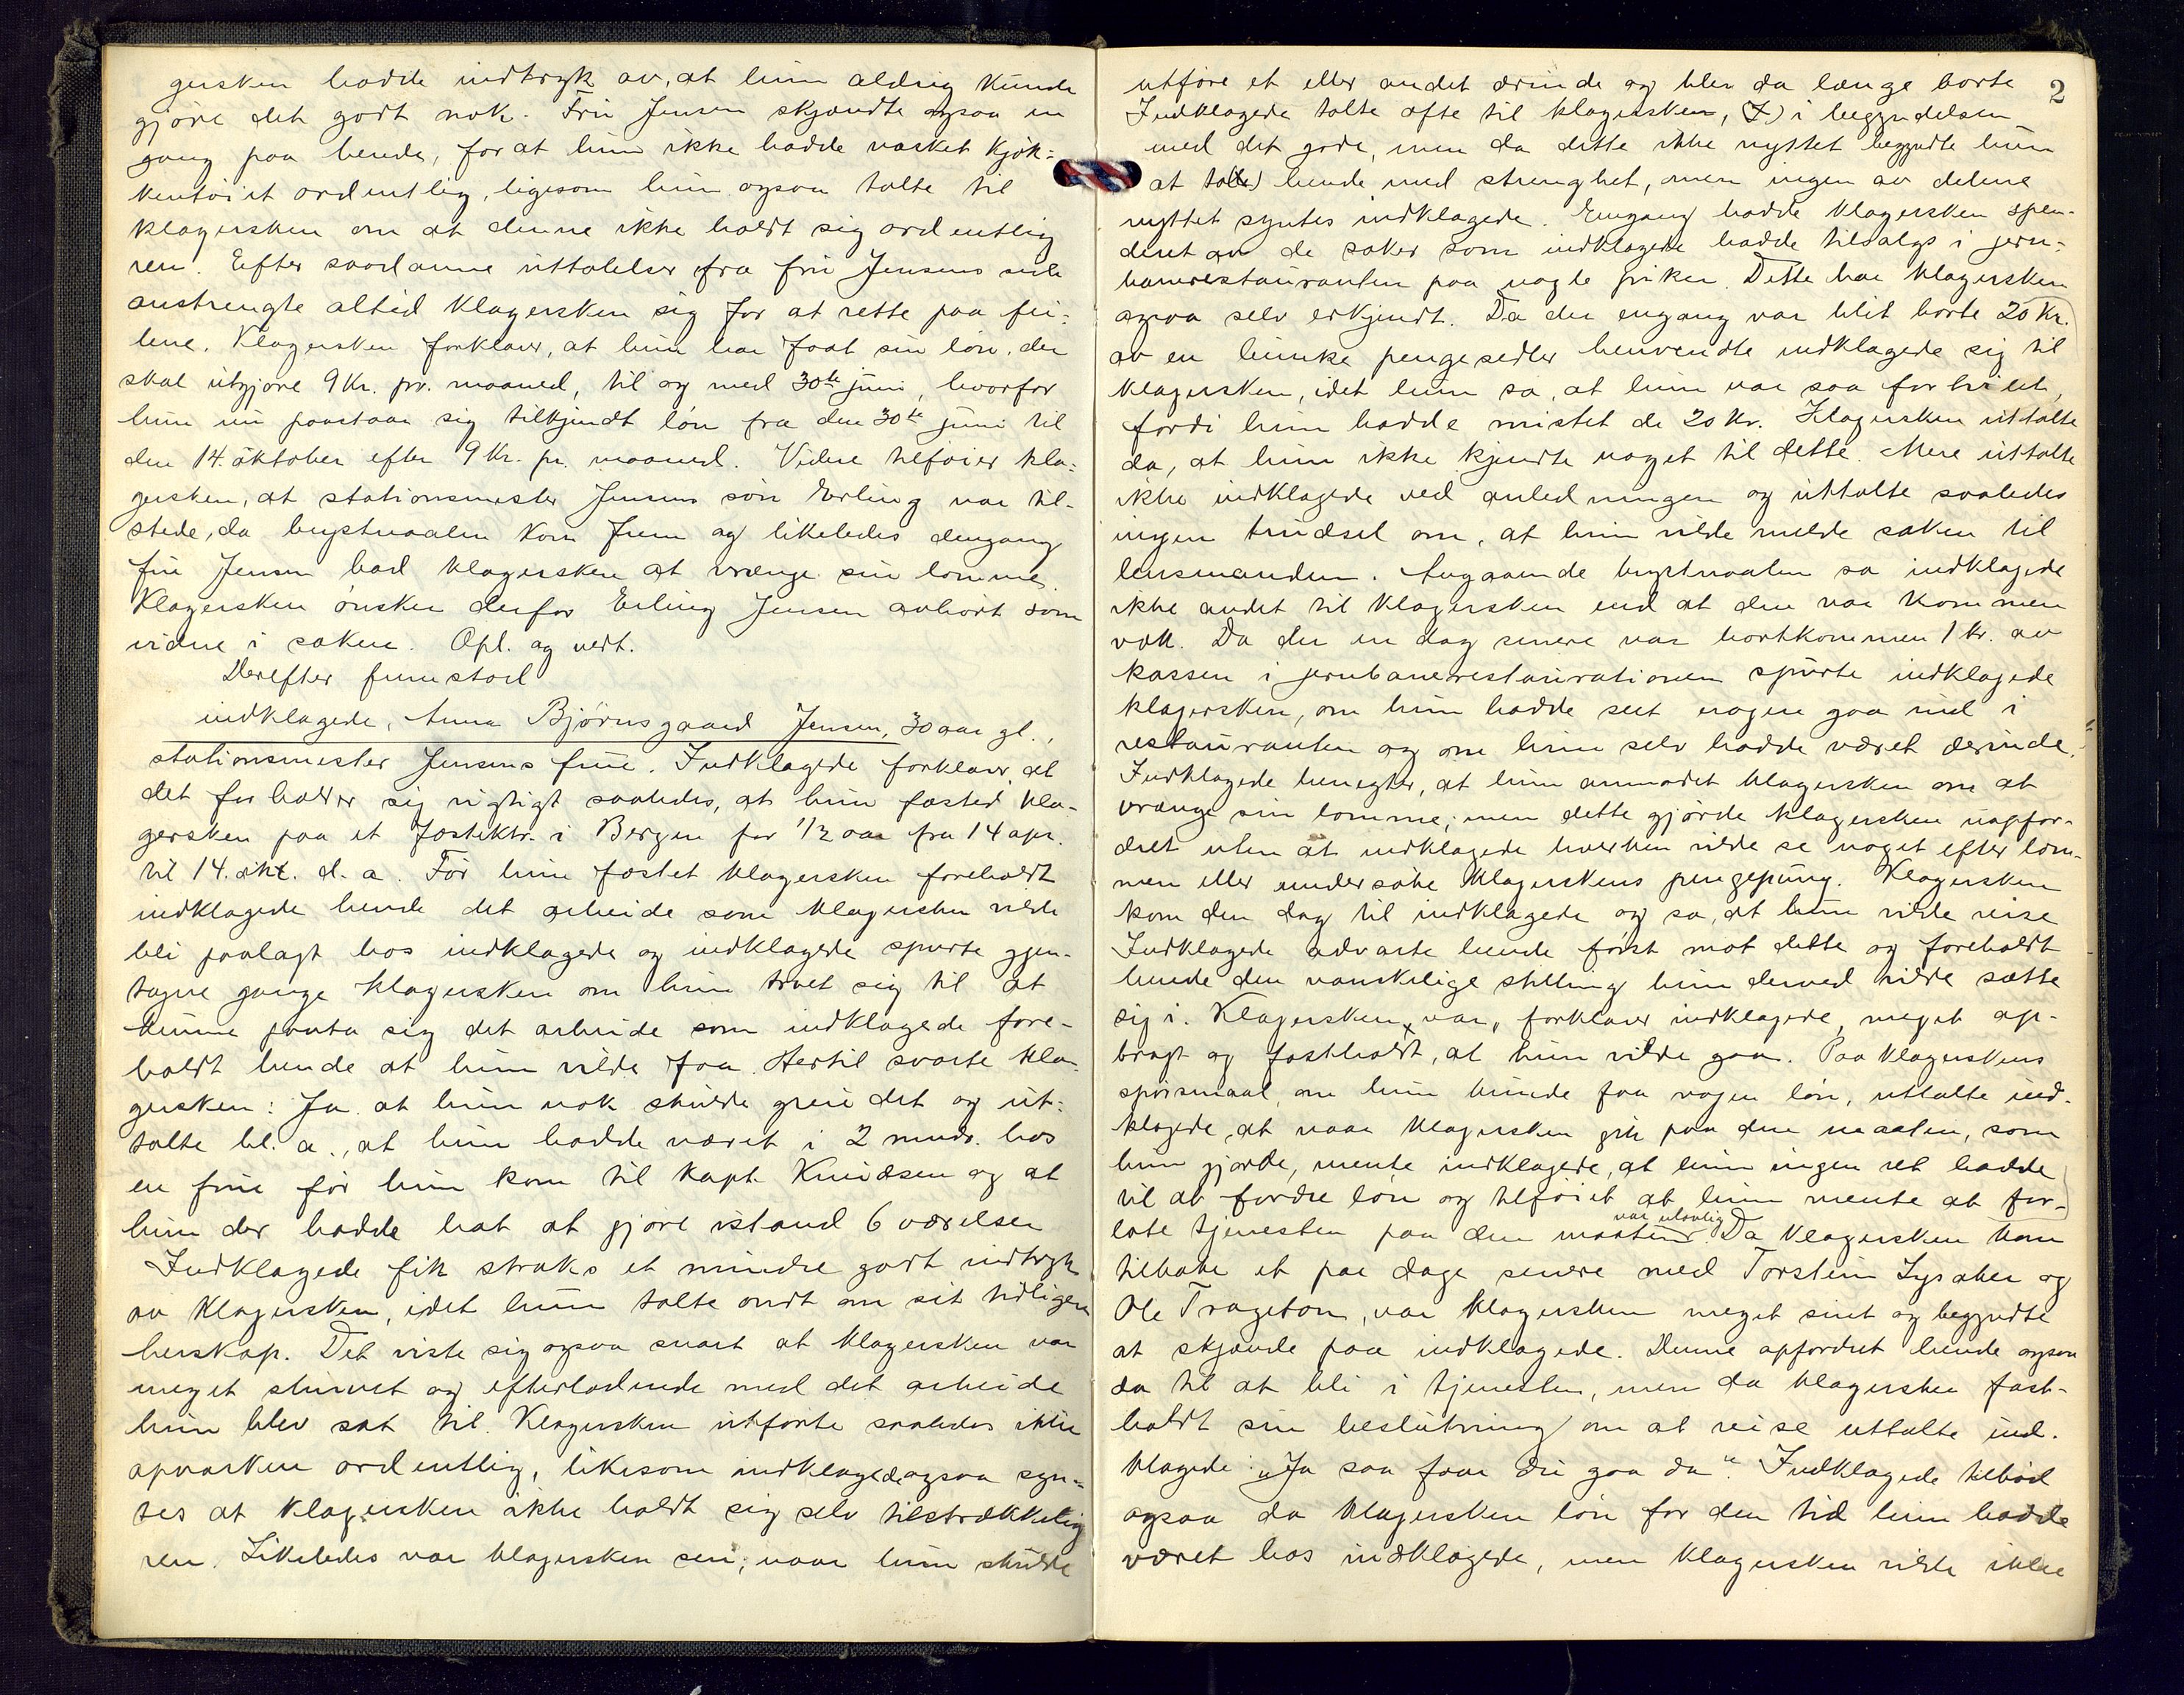 gersken hadde indtryk av, at hun aldrig kunde
gjøre det godt nok. Fru Jensen skjændte ogsaa en
gang paa hende, for at hun ikke hadde vasket kjøk-
kentøiet ordentlig, ligesom hun ogsaa talte til
klagersken om at denne ikke holdt sig ordentlig
ren. Efter saadanne uttalelser fra fru Jensens side
anstrengte altid klagersken sig for at rette paa fei-
lene. Klagersken forklarer, at hun har faat sin løn, der
skal utgjøre 9 Kr. pr. maaned, til og med 30te juni, hvorfor
hun nu paastaar sig tilkjendt løn fra den 30te juni til
den 14. oktober efter 9 Kr. pr. maaned. Videre tilføier kla-
gersken, at stationsmester Jensens søn Erling var til-
stede, da brystnaalen kom frem og likeledes dengang
fru Jensen bad klagersken at vrænge sin lomme.
Klagersken ønsker derfor Erling Jensen avhørt som
vidne i saken. Opl. og vedt.
Derefter fremstod
indklagede, Anna Bjørnsgaard Jensen, 30 aar gl.,
stationsmester Jensens frue. Indklagede forklarer, at
det forholder sig rigtigt saaledes, at hun fæsted kla-
gersken paa et fæstektr. i Bergen for 1/2 aar fra 14 apr.
til 14. okt. d. a. Før hun fæstet klagersken foreholdt
indklagede hende det arbeide som klagersken vilde
bli paalagt hos indklagede og indklagede spurte gjen-
tagne gange klagersken om hun trodde sig til at
kunne paata sig det arbeide som indklagede fore-
holdt hende at hun vilde faa. Hertil svarte kla-
gersken: Ja at hun nok skulde greie det og ut-
talte bl. a., at hun hadde været i 2 mndr. hos
en frue før hun kom til kapt. Knudsen og at
hun der hadde hat at gjøre istand 6 værelser
Indklagede fik straks et mindre godt indtryk
av klagersken, idet hun talte ondt om sit tidligere
herskap. Det viste sig ogsaa snart at klagersken var
meget skjurvet og efterladende med det arbeide
hun blev sat til. Klagersken utførte saaledes ikke
opvasken ordentlig, likesom indklagede ogsaa syn-
tes at klagersken ikke holdt sig selv tilstrækkelig
ren. Likeledes var klagersken sen, naar hun skulde
2
utføre et eller andet ærinde og blev da længe borte
Indklagede talte ofte til klagersken, i begyndelsen
med det gode, men da dette ikke nyttet begyndte hun
at tale hende med strenghet, men ingen av delene
nyttet syntes indklagede. Engang hadde klagersken spen-
deret av de saker som indklagede hadde tilsalgs i jern-
banerestauranten paa nogle piker. Dette har klagersken
ogsaa selv erkjendt. Da der engang var blit borte 20 Kr.
av en bunke pengesedler henvendte indklagede sig til
klagersken, idet hun sa, at hun var saa fortvilet,
fordi hun hadde mistet de 20 Kr. Klagersken uttalte
da, at hun ikke kjendte noget til dette. Mere uttalte
ikke indklagede ved anledningen og uttalte saaledes
ingen trudsel om, at hun vilde melde saken til
lensmanden. Angaaende brystnaalen sa indklagede
ikke andet til klagersken end at den var kommen
væk. Da der en dag senere var bortkommen 1 kr. av
kassen i jernbanerestaurationen spurte indklagede
klagersken, om hun hadde seet nogen gaa ind i
restauranten og om hun selv hadde været derinde.
Indklagede benegter, at hun anmodet klagersken om at
vrænge sin lomme; men dette gjorde klagersken uopfor-
dret uten at indklagede hverken vilde se noget efter lom-
men eller undersøke klagerskens pengepung. Klagersken
kom den dag til indklagede og sa, at hun vilde reise
Indklagede advarte hende først mot dette og foreholdt
hende den vanskelige stilling hun derved vilde sætte
sig i. Klagersken var, forklarer indklagede, meget op-
bragt og fastholdt, at hun vilde gaa. Paa klagerskens
spørsmaal, om hun kunde faa nogen løn, uttalte ind-
klagede, at naar klagersken gik paa den maaten, som
hun gjorde, mente indklagede, at hun ingen ret hadde
til at fordre løn og tilføiet at hun mente at for-
late tjenesten paa den maaten var ulovlig. Da klagersken kom
tilbake et par dage senere med Torstein Lysaker og
Ole Trageton, var klagersken meget sint og begyndte
at skjænde paa indklagede. Denne opfordret hende ogsaa
da til at bli i tjenesten, men da klagersken fast-
holdt sin beslutning om at reise uttalte ind-
klagede: „Ja saa faar du gaa da“. Indklagede tilbød
ogsaa da klagersken løn for den tid hun hadde
været hos indklagede, men klagersken vilde ikke